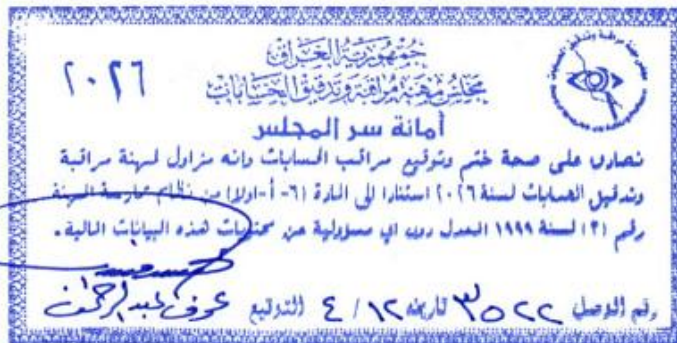 جمهورية العراق
مجلس مهنة مراقبة وتدقيق الحسابات
٢٠٢٦
أمانة سر المجلس
نصادق على صحة ختم وتوقيع مراقب الحسابات وانه مزاول لمهنة مراقبة
وتدقيق الحسابات لسنة ٢٠٢٦ استنادا الى المادة (٦-أ-اولا) من نظام ممارسة المهنة
رقم (٣) لسنة ١٩٩٩ المعدل دون اي مسؤولية عن محتويات هذه البيانات المالية.
رقم الوصل ٣٥٢٢ تاريخه ١٢ / ٤ التوقيع عوف عبدالرحمن